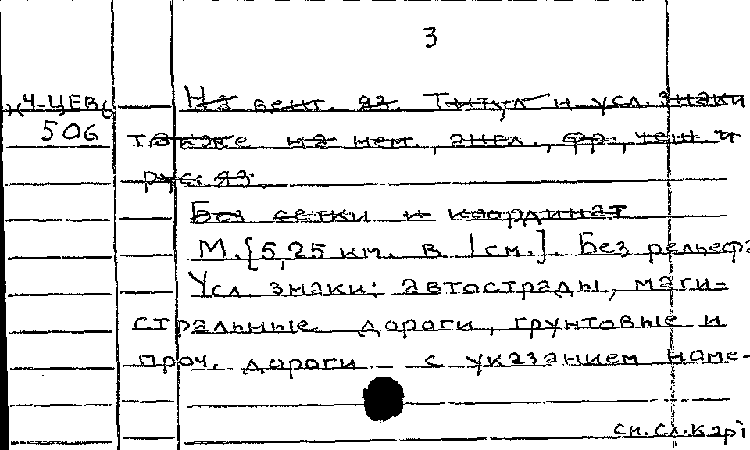 3
Ч-ЦЕВ
506
На венг. яз. Титул и усл. знаки
также на нем., англ., фр., чеш и
рус. яз.
Без сетки и координат
М.[5,25 км. в 1 см.]. Без рельефа
Усл. знаки: автострады, маги-
стральные дороги, грунтовые и
проч. дороги с указанием номе-
см. сл. кар